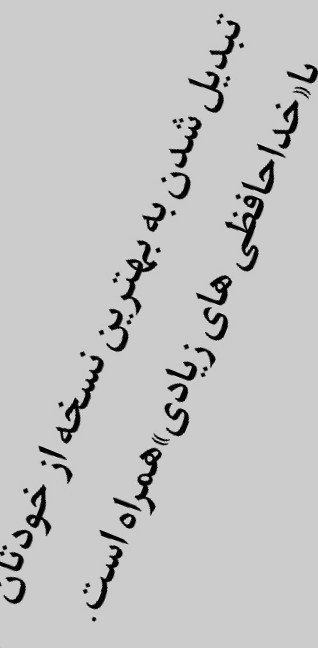 تبدیل شدن به بهترین نسخه از خودتان
با«خداحافظی های زیادی»همراه است.